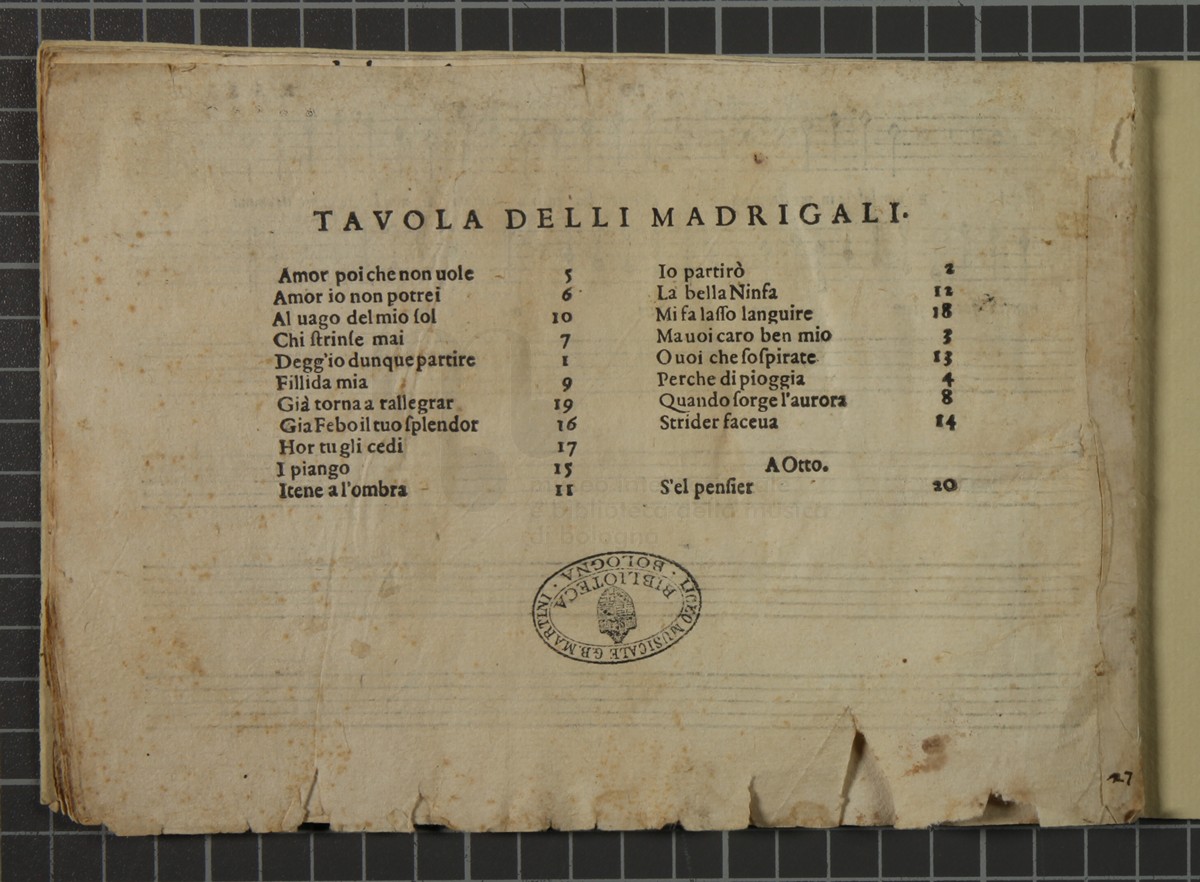 TAVOLA DELLI MADRIGALI.
Amor poi che non uole 5
Amor io non potrei 6
Al uago del mio ſol 10
Chi ſtrinſe mai 7
Degg'io dunque partire 1
Fillida mia 9
Già torna a rallegrar 19
Gia Febo il tuo ſplendor 16
Hor tu gli cedi 17
I piango 15
Itene a l'ombra 11
Io partirò 2
La bella Ninfa 12
Mi fa laſſo languire 18
Ma uoi caro ben mio 3
O uoi che ſoſpirate 13
Perche di pioggia 4
Quando ſorge l'aurora 8
Strider faceua 14
A Otto.
S'el penſier 20
e biblioteca della musica
di Bologna
LICEO MUSICALE G.B. MARTINI · BOLOGNA ·
BIBLIOTECA
27